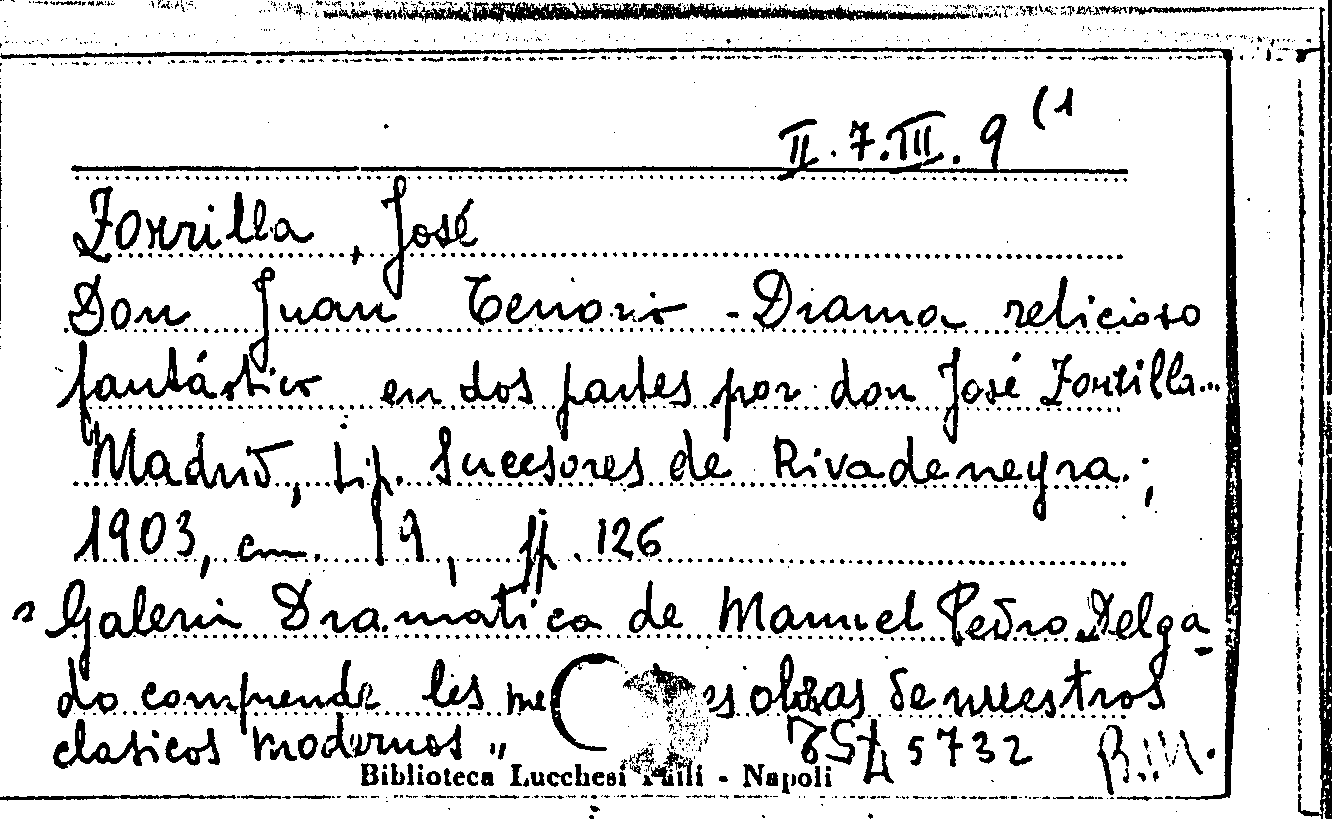 II. 7. III. 9 (1
Zorrilla, José
Don Juan Tenorio - Drama relicioso
fantástico en dos partes por don José Zorrilla...
Madrid, tip. Sucesores de Rivadeneyra;
1903, cm. 19, pp. 126
"Galeria Dramatica de Manuel Pedro Delga-
do comprende les obras de nuestros
clasicos modernos"
5732 B.M.
Biblioteca Lucchesi Palli - Napoli